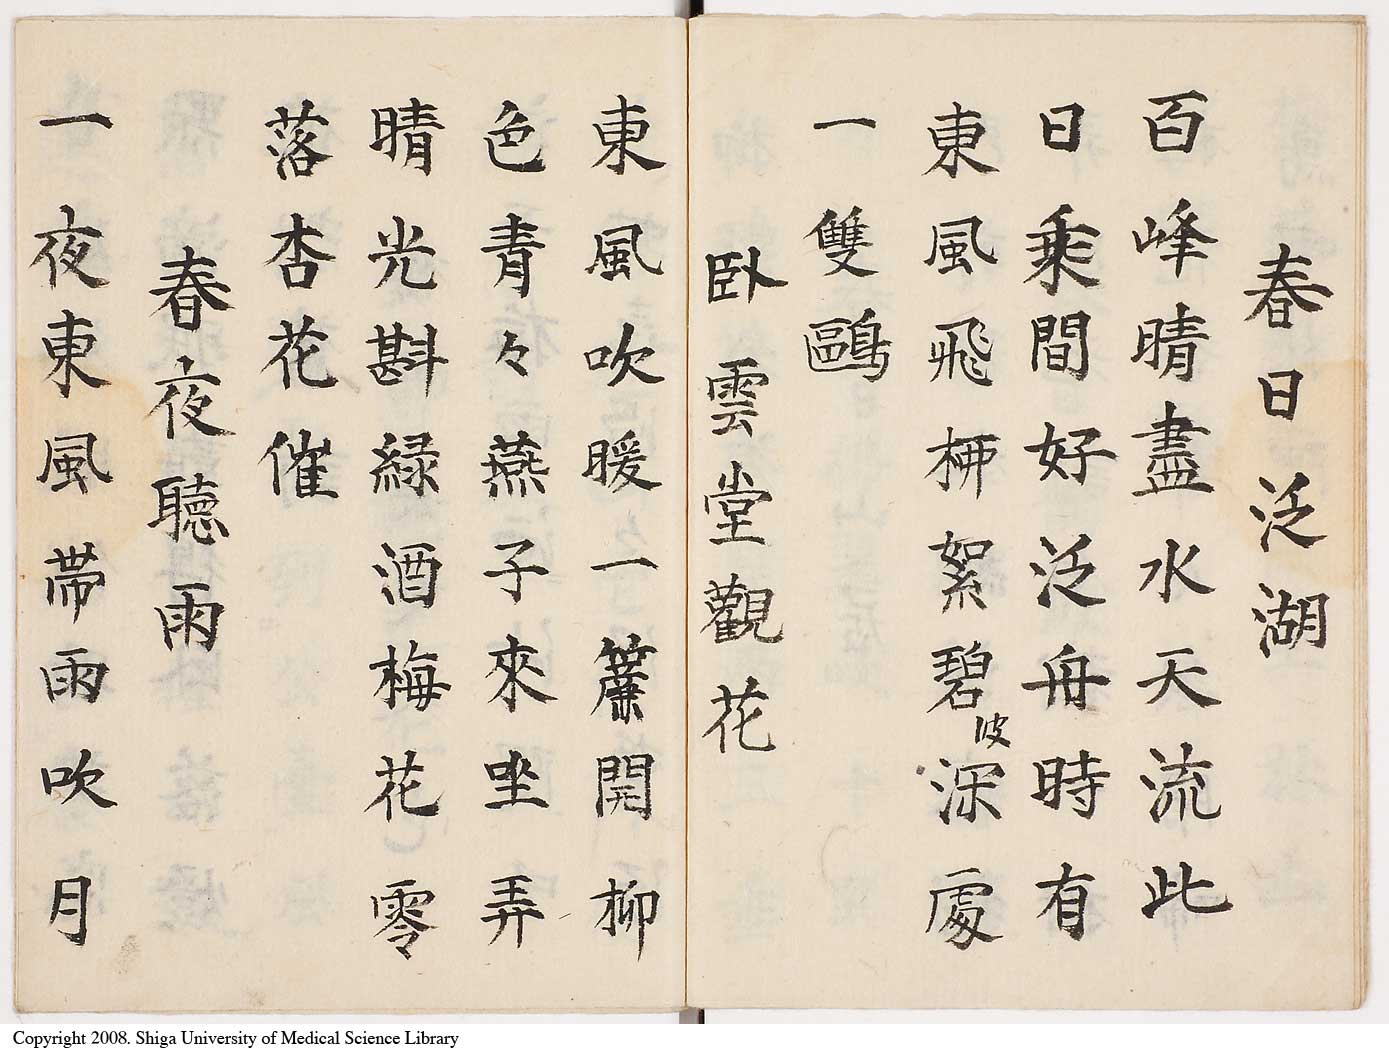 春日泛湖
百峰晴盡水天流此
日乗間好泛舟時有
東風飛栁絮碧波深處
一雙鷗
臥雲堂觀花
東風吹暖一簾開柳
色青々燕子來坐弄
晴光斟緑酒梅花零
落杏花催
春夜聴雨
一夜東風帶雨吹月
Copyright 2008. Shiga University of Medical Science Library